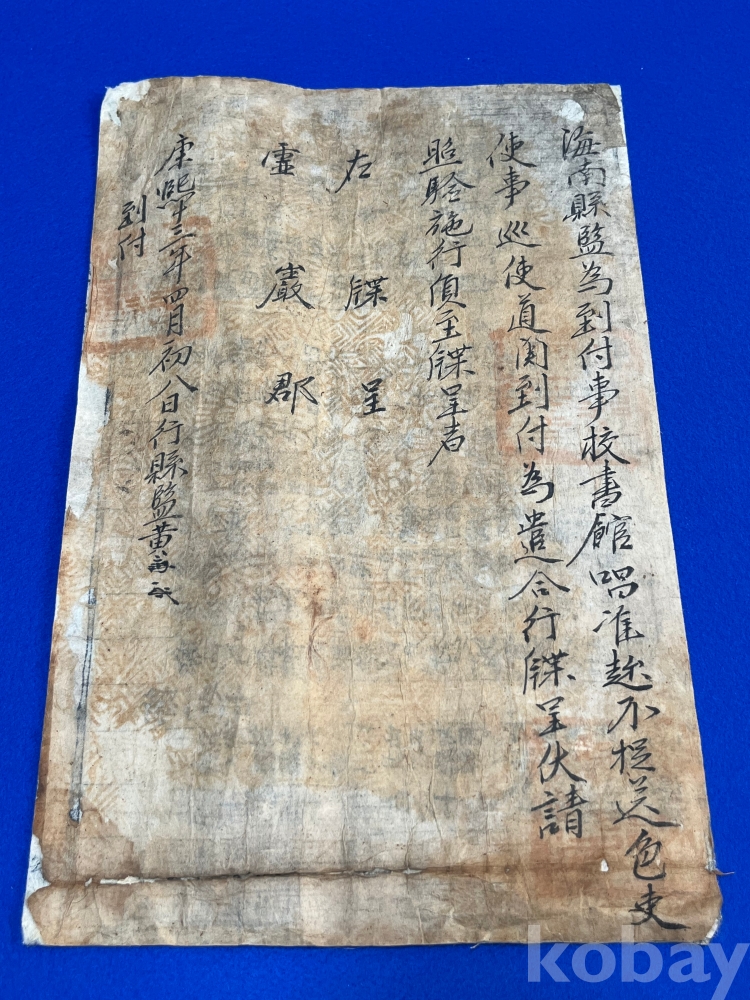 海南縣監為到付事校書館唱准趁不捉送色吏
使事巡使道関到付為遣合行牒呈伏請
照驗施行須至牒呈者
右牒呈
靈巖郡
康熙十三年四月初八日行縣監黃
到付
kobay